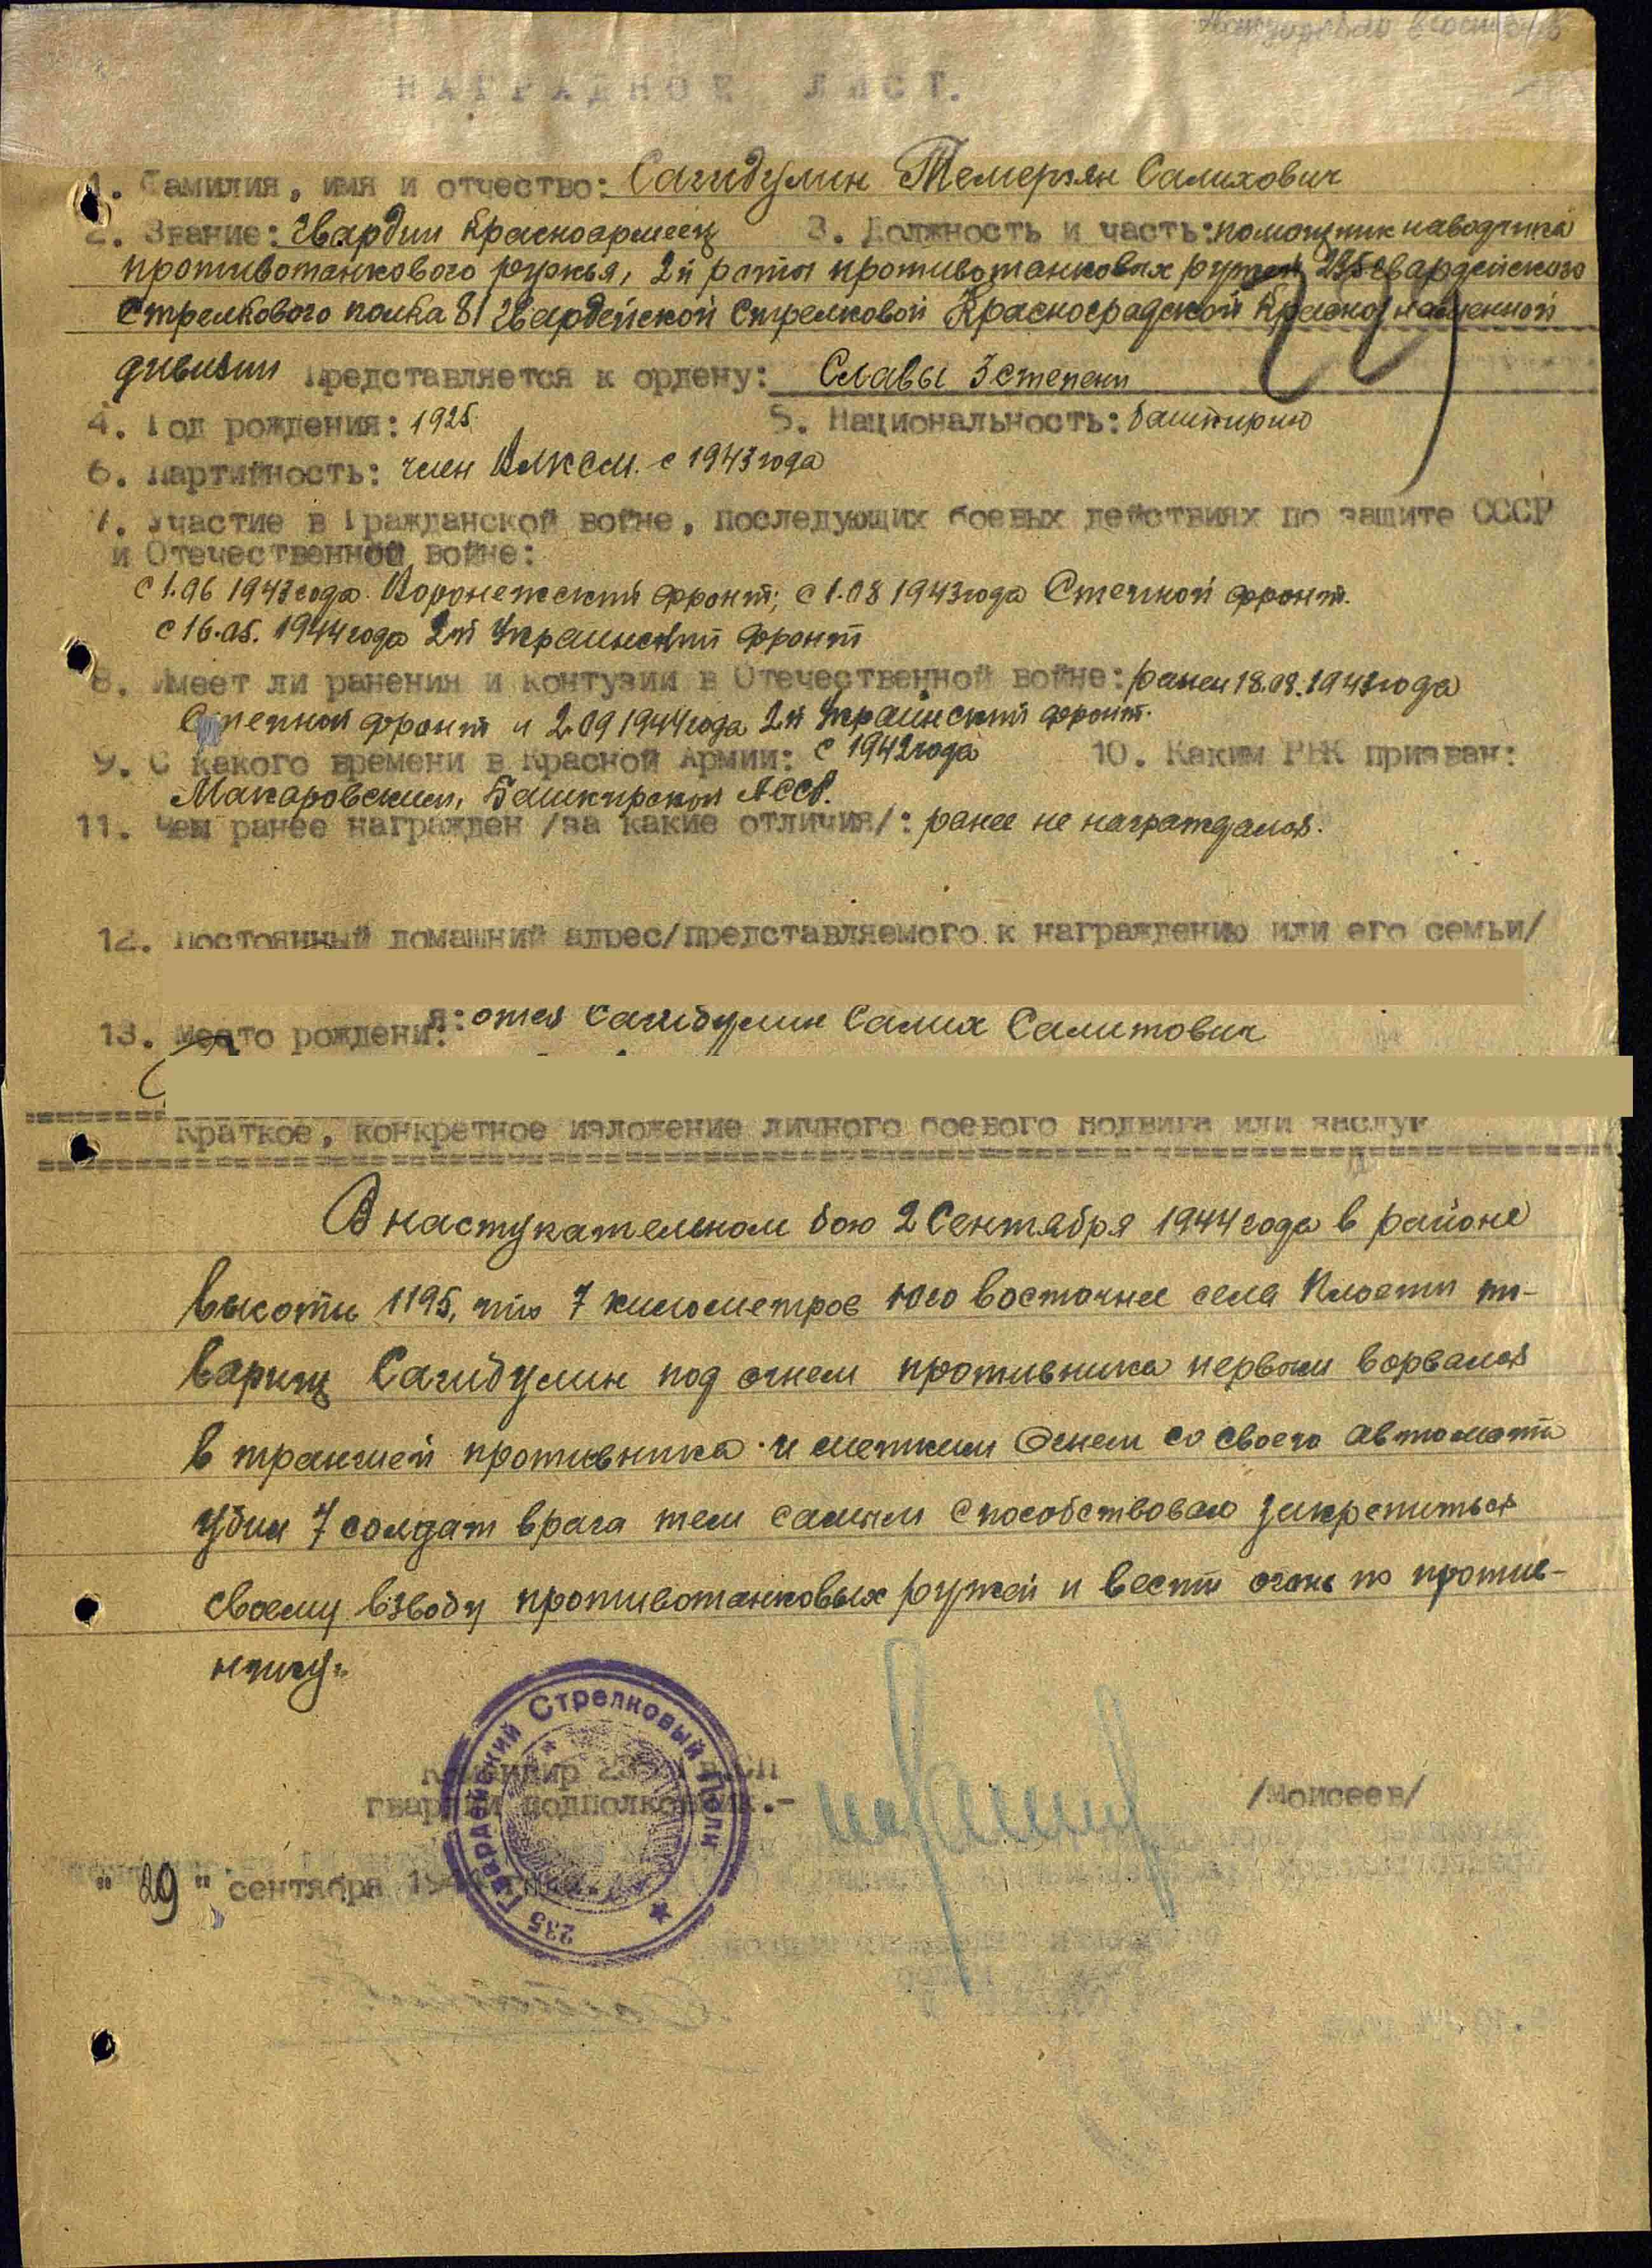 НАГРАДНОЙ ЛИСТ.
1. Фамилия, имя и отчество: Сагидулин Темергян Салихович
2. Звание: гвардии Красноармеец 3. Должность и часть: помощник наводчика
противотанкового ружья, 2й роты противотанковых ружей 235 гвардейского
Стрелкового полка 81 гвардейской Стрелковой Красноградской Краснознаменной
дивизии Представляется к ордену: Славы 3 степени
4. Год рождения: 1925. 5. Национальность: башкирин
6. Партийность: член ВЛКСМ. с 1943 года
7. Участие в Гражданской войне, последующих боевых действиях по защите СССР
и Отечественной войне:
с 1.06 1943 года. Воронежский фронт; с 1.08 1943 года Степной фронт.
с 16.05. 1944 года 2й Украинский фронт
8. Имеет ли ранения и контузии в Отечественной войне: ранен 18.08.1943 года
Степной фронт и 2.09 1944 года 2й Украинский фронт.
9. С какого времени в Красной Армии: с 1942 года 10. Каким РВК призван:
Макаровским, Башкирской АССР.
11. Чем ранее награжден /за какие отличия/: ранее не награждался.
12. Постоянный домашний адрес/представляемого к награждению или его семьи/
13. Место рождения: отец Сагидулин Салих Салитович
Краткое, конкретное изложение личного боевого подвига или заслуг
В наступательном бою 2 Сентября 1944 года в районе
высоты 1195, что 7 километров юго восточнее села Плоети то-
варищ Сагидулин под огнем противника первым ворвался
в траншей противника и метким огнем со своего автомата
убил 7 солдат врага тем самым способствовал закрепиться
своему взводу противотанковых ружей и вести огонь по против-
нику.
Командир 235 гв.СП
гвардии подполковник.- /Моисеев/
"29" сентября 194
235 Гвардейский Стрелковый Полк